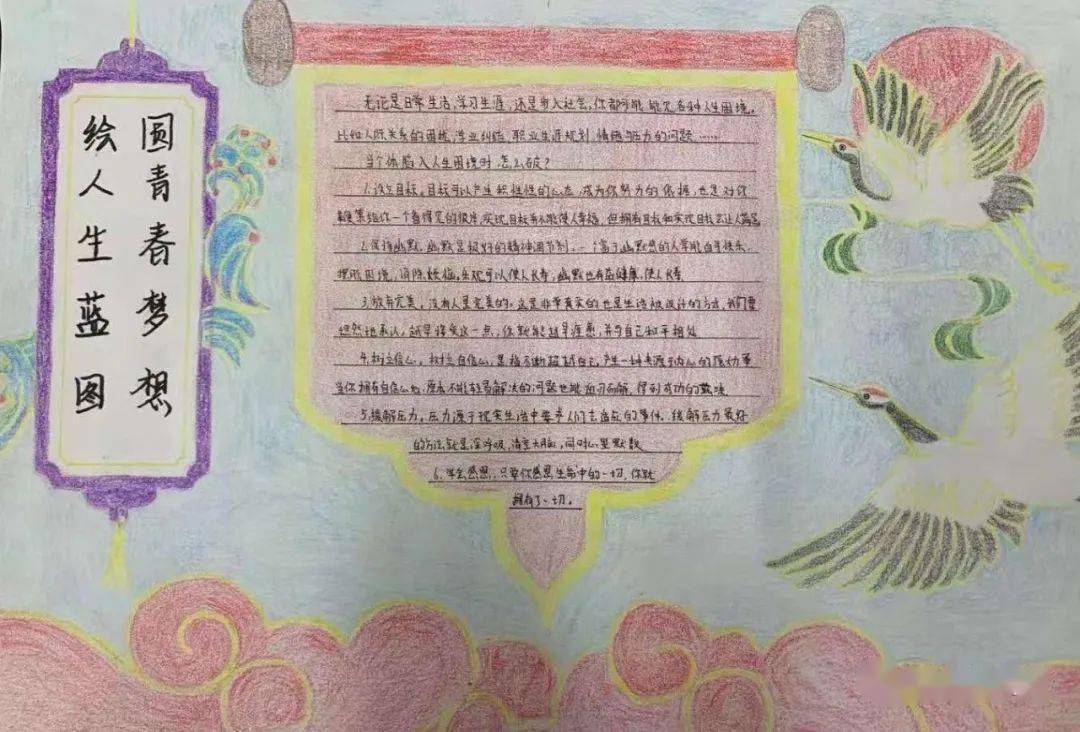 圆青春梦想
绘人生蓝图
无论是日常生活,学习生涯,还是步入社会,你都可能遇见各种人生困境,
比如人际关系的困扰,学业纠结,职业生涯规划,情绪与压力的问题……
当个体陷入人生困境时,怎么破?
1.设立目标,目标可以产生积极性的心态,成为你努力的依据,也是对你
鞭策给你一个看得见的彼岸,实现目标未必能使人幸福,但拥有目标和实现目标会让人满足
2.保持幽默,幽默是极好的精神调节剂,一个富于幽默感的人常能自寻快乐,
摆脱困境,消除烦恼,乐观可以使人长寿,幽默也有益健康,使人长寿
3.放弃完美,没有人是完美的,这是非常真实的也是生活被设计的方式,我们要
坦然地承认,越早接受这一点,你就能越早痊愈,并与自己和平相处
4.树立信心,树立自信心,是指不断超越自己,产生一种来源于内心的强劲
当你拥有自信心,原本不能轻易解决的问题也能迎刃而解,得到成功的
5.缓解压力,压力源于现实生活中要求人们去适应的事件,缓解压力最好
的方法就是深呼吸,清空大脑,同时心里默数
6.学会感恩,只要你感恩生命中的一切,你就
拥有了一切。